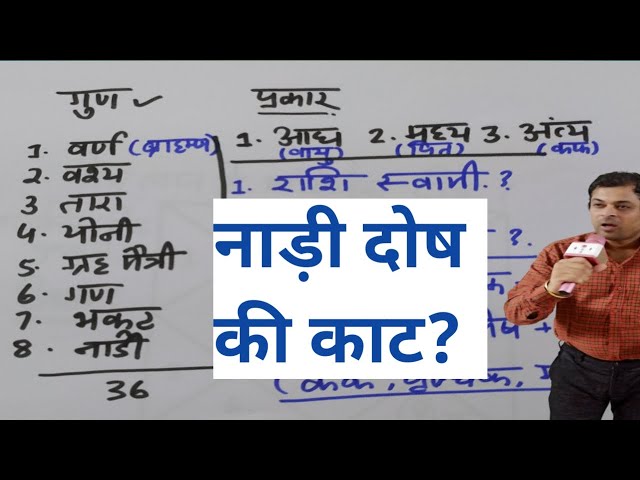 गुण ✓
1. वर्ण (ब्राहम्ण)
2. वश्य
3 तारा
4. योनी
5. ग्रह मैत्री
6. गण
7. भकुट
8. नाडी
36
प्रकार
1. आद्य 2. मध्य 3. अंत्य
(वायु) (पित) (कफ)
1. राशि स्वामी. ?
नाड़ी दोष
की काट?
?.
+
(कर्क,